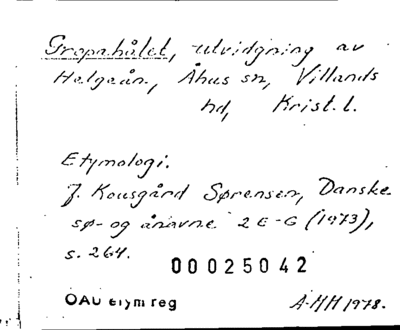 Gropahålet, utvidgning av
Helgeån, Åhus sn, Villands
hd, Krist. l.
Etymologi.
J. Kousgård Sørensen, Danske
sø- og ånavne 2 E-G (1973),
s. 264.
00025042
OAU etym reg
A-HH 1978.